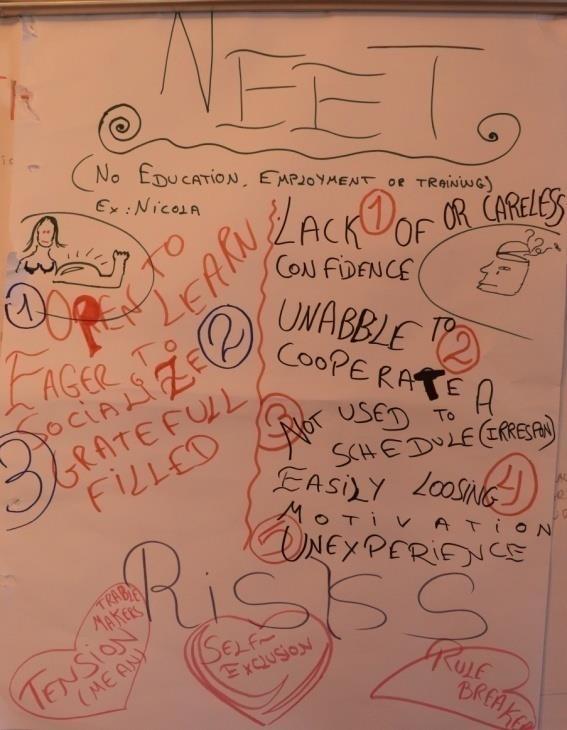 NEET
(NO EDUCATION, EMPLOYMENT OR TRAINING)
EX: NICOLA
1 OPEN TO
LEARN
2 EAGER TO
SOCIALIZE
3 GRATEFULL
FILLED
1 LACK OF OR CARELESS
CONFIDENCE
2 UNABBLE TO
COOPERATE A
3 NOT USED TO
SCHEDULE (IRRESPON)
4 EASILY LOOSING
MOTIVATION
5 UNEXPERIENCE
RISKS
TRABLE
MAKERS
TENSION
(MEAN)
SELF-
EXCLUSION
RULE
BREAKER